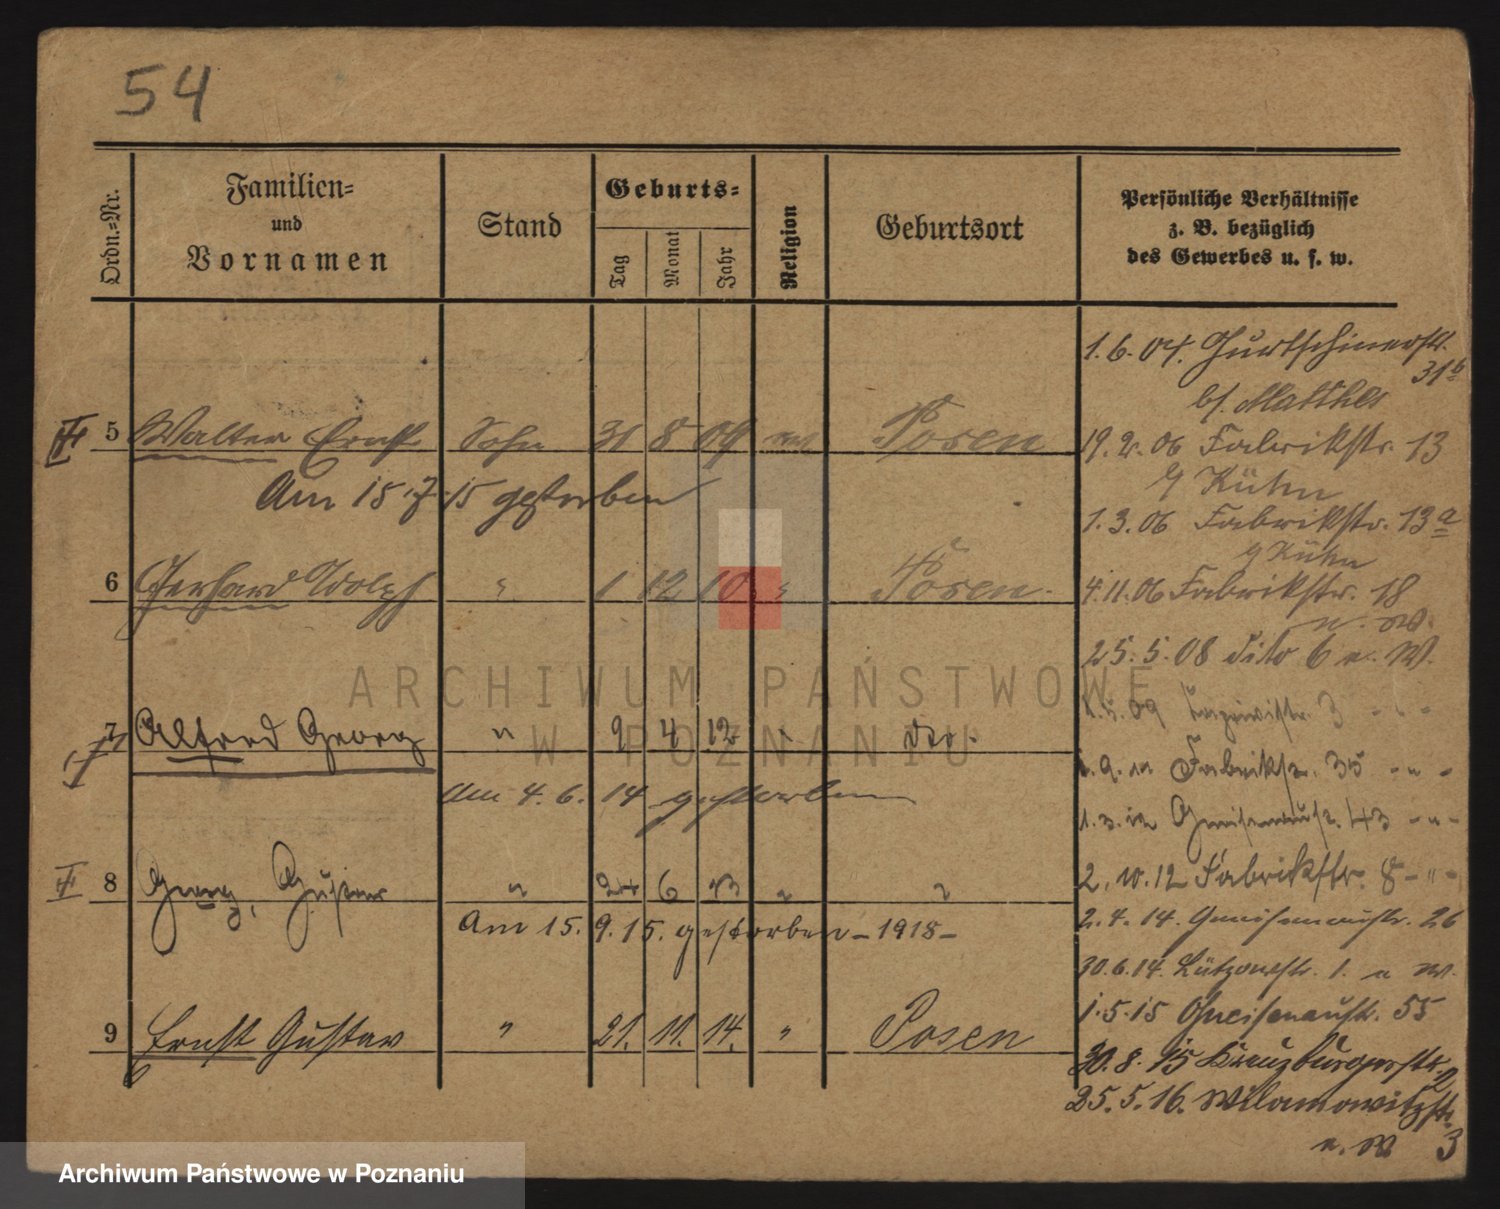 54
Ordn.=Nr.
Familien=
und
Vornamen
Stand
Geburts=
Tag
Monat
Jahr
Religion
Geburtsort
Persönliche Verhältnisse
z. B. bezüglich
des Gewerbes u. s. w.
1.6.04. Gurtschinerstr.
31b
b/ Matthes
5 Walter Ernst Sohn 31 8 09 Posen
19.2.06 Fabrikstr. 13
b/ Kühn
Am 15.7.15 gestorben
1.3.06 Fabrikstr. 13a
b/ Kühn
6 Gerhard Adolph " 1 12 10 " Posen
4.11.06 Fabrikstr. 18
n. W.
25.5.08 dito 6 n. W.
ARCHIWUM PAŃSTWOWE
W POZNANIU
7 Alfred Georg " 9 4 12 " do.
.9.11 Fabrikstr. 35 - " -
Am 4.6.14 gestorben
1.3.12 Gneisenaustr. 43 - " -
8 Georg, Gustav " 24 6 13 " "
2.10.12 Fabrikstr. 8 - " -
Am 15.9.15. gestorben - 1918 -
2.4.14. Gneisenaustr. 26
30.6.14. Lützowstr. 1. n W.
1.5.15 Gneisenaustr. 55
9 Ernst Gustav " 21. 11. 14. " Posen
30.8.15 Kreuzburgerstr. 2
25.5.16. Wilamowitzstr.
n. W 3
Archiwum Państwowe w Poznaniu